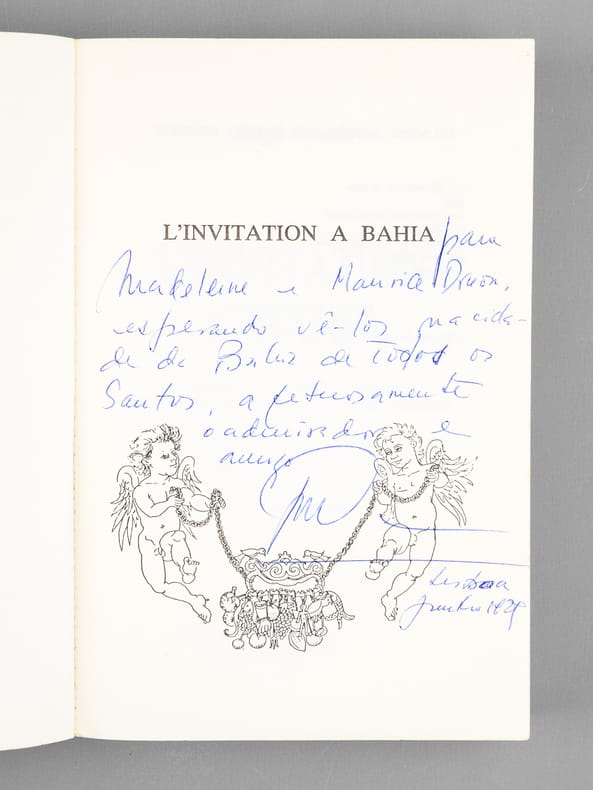 L'INVITATION A BAHIA para
Madeleine e Maurice Druon,
esperando vê-los na cida-
de da Bahia de Todos os
Santos, afetuosamente
o admirador e
amigo
Lisboa
junho